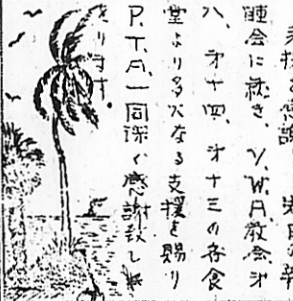 感謝 先日の親
睦会に就き、Y.W.A教会才
八、才十四、才十三の各食
堂より多大なる支援を賜り
P.T.A.一同深く感謝致し
をります。